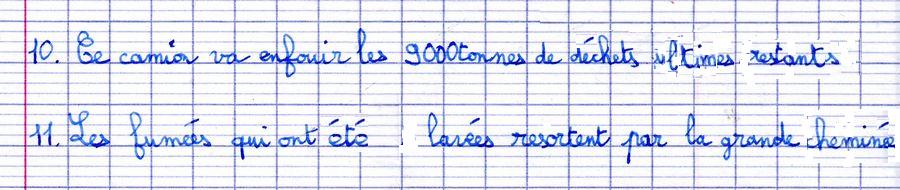 10. Ce camion va enfouir les 9000tonnes de déchets ultimes restants
11. Les fumées qui ont été lavées resortent par la grande cheminée